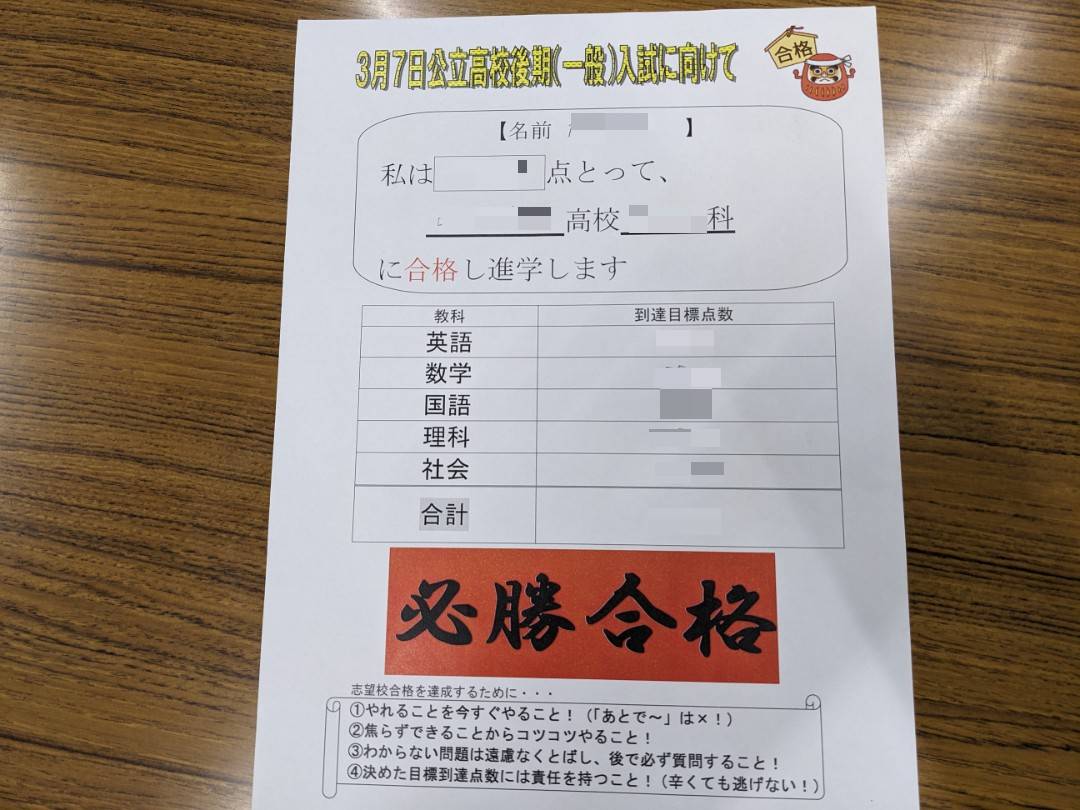 3月7日公立高校後期(一般)入試に向けて
合格
【名前 】
私は 点とって、
高校 科
に合格し進学します
教科 到達目標点数
英語
数学
国語
理科
社会
合計
必勝合格
志望校合格を達成するために・・・
①やれることを今すぐやること！（「あとで～」は×！）
②焦らずできることからコツコツやること！
③わからない問題は遠慮なくとばし、後で必ず質問すること！
④決めた目標到達点数には責任を持つこと！（辛くても逃げない！）